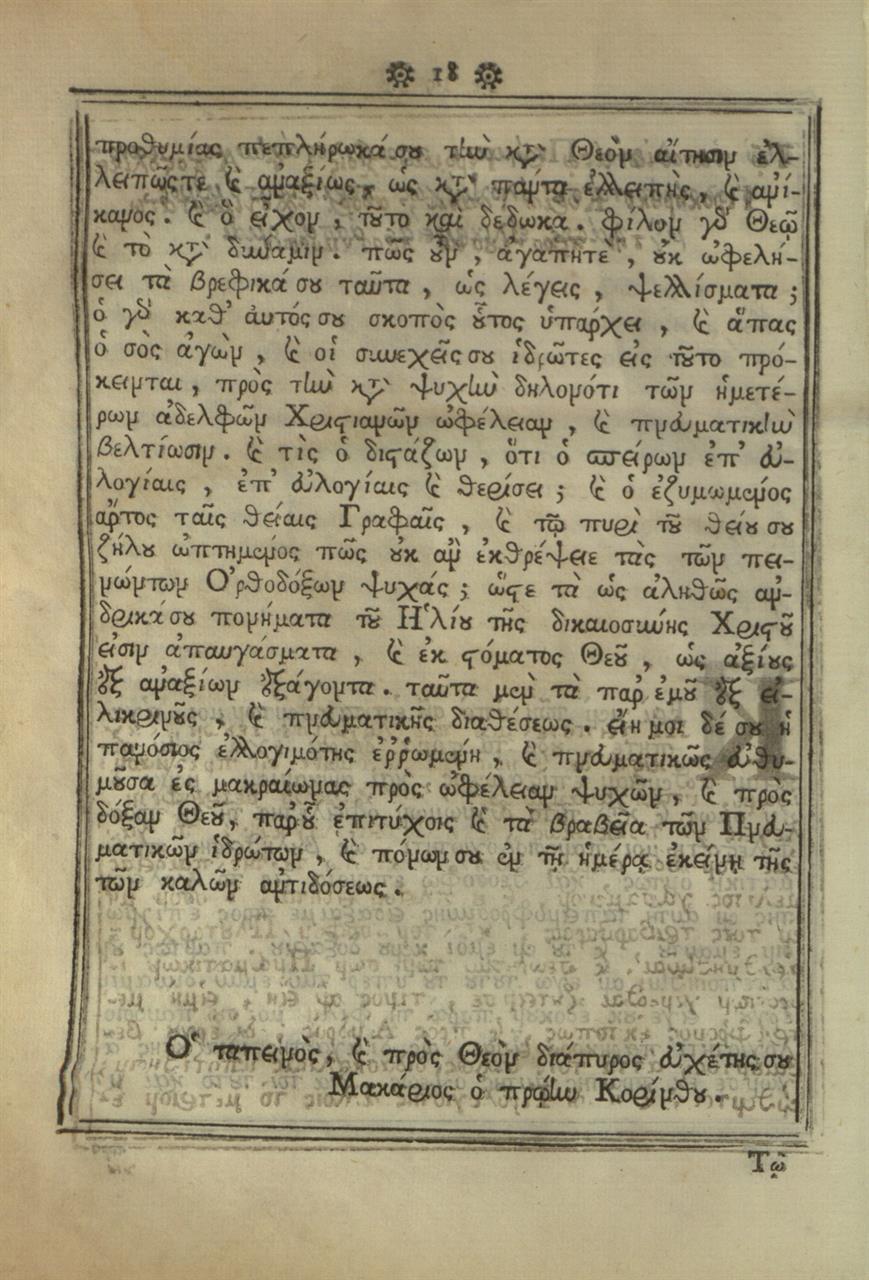 18
προθυμίας πεπλήρωκά σου τὴν κτ̀ Θεὸν αἴτησιν ἐλ-
λειπῶς τε καὶ ἀναξίως, ὡς κτ̀ πάντα ἐλλειπὴς, καὶ ἀνί-
κανος. καὶ ὃ εἶχον, τοῦτο καὶ δέδωκα. φίλον γὰρ Θεῷ
καὶ τὸ κτ̀ δύναμιν. πῶς οὖν, ἀγαπητὲ, οὐκ ὠφελή-
σει τὰ βρεφικά σου ταῦτα, ὡς λέγεις, ψελλίσματα;
ὁ γὰρ καθ' ἀυτός σου σκοπὸς οὗτος ὑπάρχει, καὶ ἅπας
ὁ σὸς ἀγὼν, καὶ οἱ συνεχεῖς σου ἱδρῶτες εἰς τοῦτο πρό-
κεινται, πρὸς τὴν κτ̀ ψυχὴν δηλονότι τῶν ἡμετέ-
ρων ἀδελφῶν Χριστιανῶν ὠφέλειαν, καὶ πνευματικὴν
βελτίωσιν. καὶ τὶς ὁ διστάζων, ὅτι ὁ σπείρων ἐπ' εὐ-
λογίαις, ἐπ' εὐλογίαις καὶ θερίσει; καὶ ὁ ἐζυμωμένος
ἄρτος ταῖς θείαις Γραφαῖς, καὶ τῷ πυρὶ τοῦ θείου σου
ζήλου ὠπτημένος πῶς οὐκ ἂν ἐκθρέψειε τὰς τῶν πει-
νώντων Ὀρθοδόξων ψυχάς; ὥστε τὰ ὡς ἀληθῶς ἀν-
δρικά σου πονήματα τοῦ Ἡλίου τῆς δικαιοσύνης Χριστοῦ
εἰσιν ἀπαυγάσματα, καὶ ἐκ στόματος Θεοῦ, ὡς ἀξίους
ἐξ ἀναξίων ἐξάγοντα. ταῦτα μὲν τὰ παρ' ἐμοῦ ἐξ εἰ-
λικρινοῦς, καὶ πνευματικῆς διαθέσεως. εἴη μοι δέ σου ἡ
πανόσιος ἐλλογιμότης ἐῤῥωμένη, καὶ πνευματικῶς εὐθυ-
μοῦσα ἐς μακραίωνας πρὸς ὠφέλειαν ψυχῶν, καὶ πρὸς
δόξαν Θεοῦ, παρ' οὗ ἐπιτύχοις καὶ τὰ βραβεῖα τῶν Πνευ-
ματικῶν ἱδρώτων, καὶ πόνων σου ἐν τῇ ἡμέρᾳ ἐκείνῃ τῆς
τῶν καλῶν ἀντιδόσεως.
Ὁ ταπεινὸς, καὶ πρὸς Θεὸν διάπυρος εὐχέτης σου
Μακάριος ὁ πρώην Κορίνθου.
Τῷ